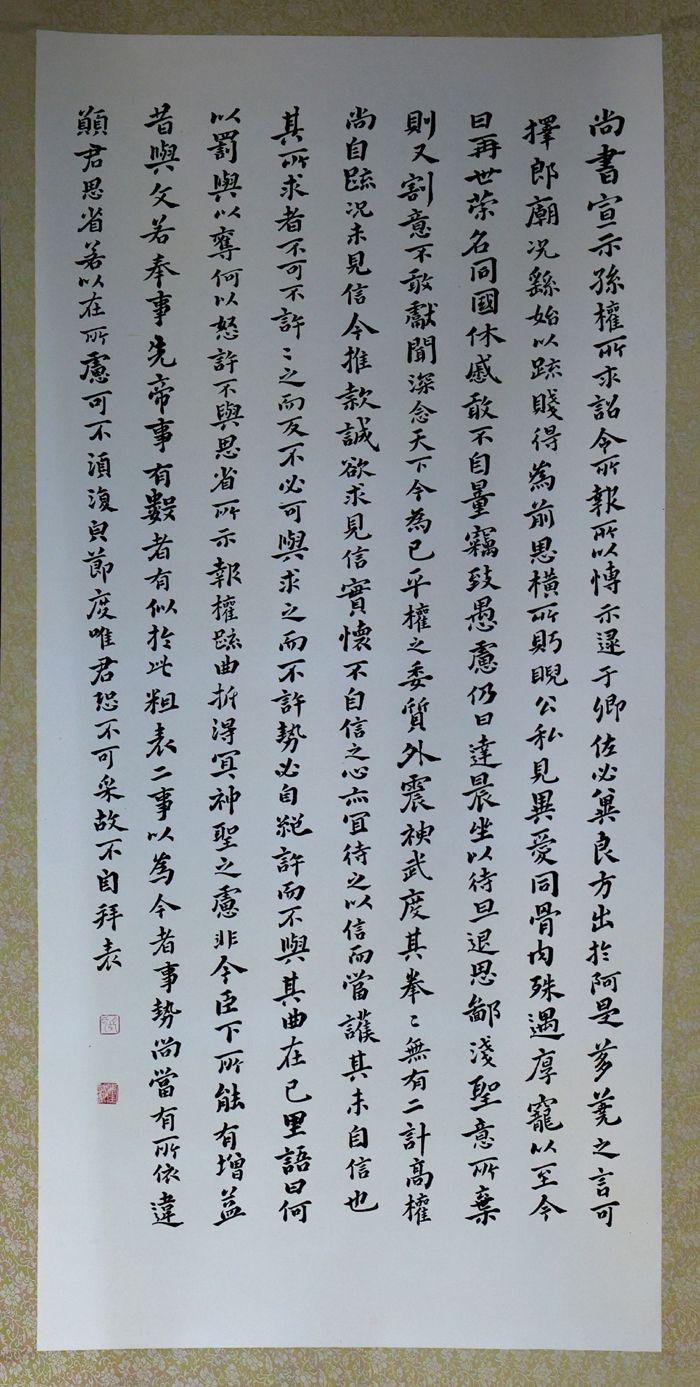 尚書宣示孫權所求詔令所報所以博示逮于卿佐必冀良方出於阿是芻蕘之言可
擇郎廟況繇始以疏賤得為前恩橫所眄睨公私見異愛同骨肉殊遇厚寵以至今
日再世榮名同國休慼敢不自量竊致愚慮仍日達晨坐以待旦退思鄙淺聖意所棄
則又割意不敢獻聞深念天下今為已平權之委質外震神武度其拳〻無有二計高權
尚自疏況未見信今推款誠欲求見信實懷不自信之心亦宜待之以信而當護其未自信也
其所求者不可不許〻之而反不必可與求之而不許勢必自絕許而不與其曲在己里語曰何
以罰與以奪何以怒許不與思省所示報權疏曲折得冥神聖之慮非今臣下所能有增益
昔與文若奉事先帝事有數者有似於此粗表二事以為今者事勢尚當有所依違
願君思省若以在所慮可不須復貞節度唯君恐不可采故不自拜表